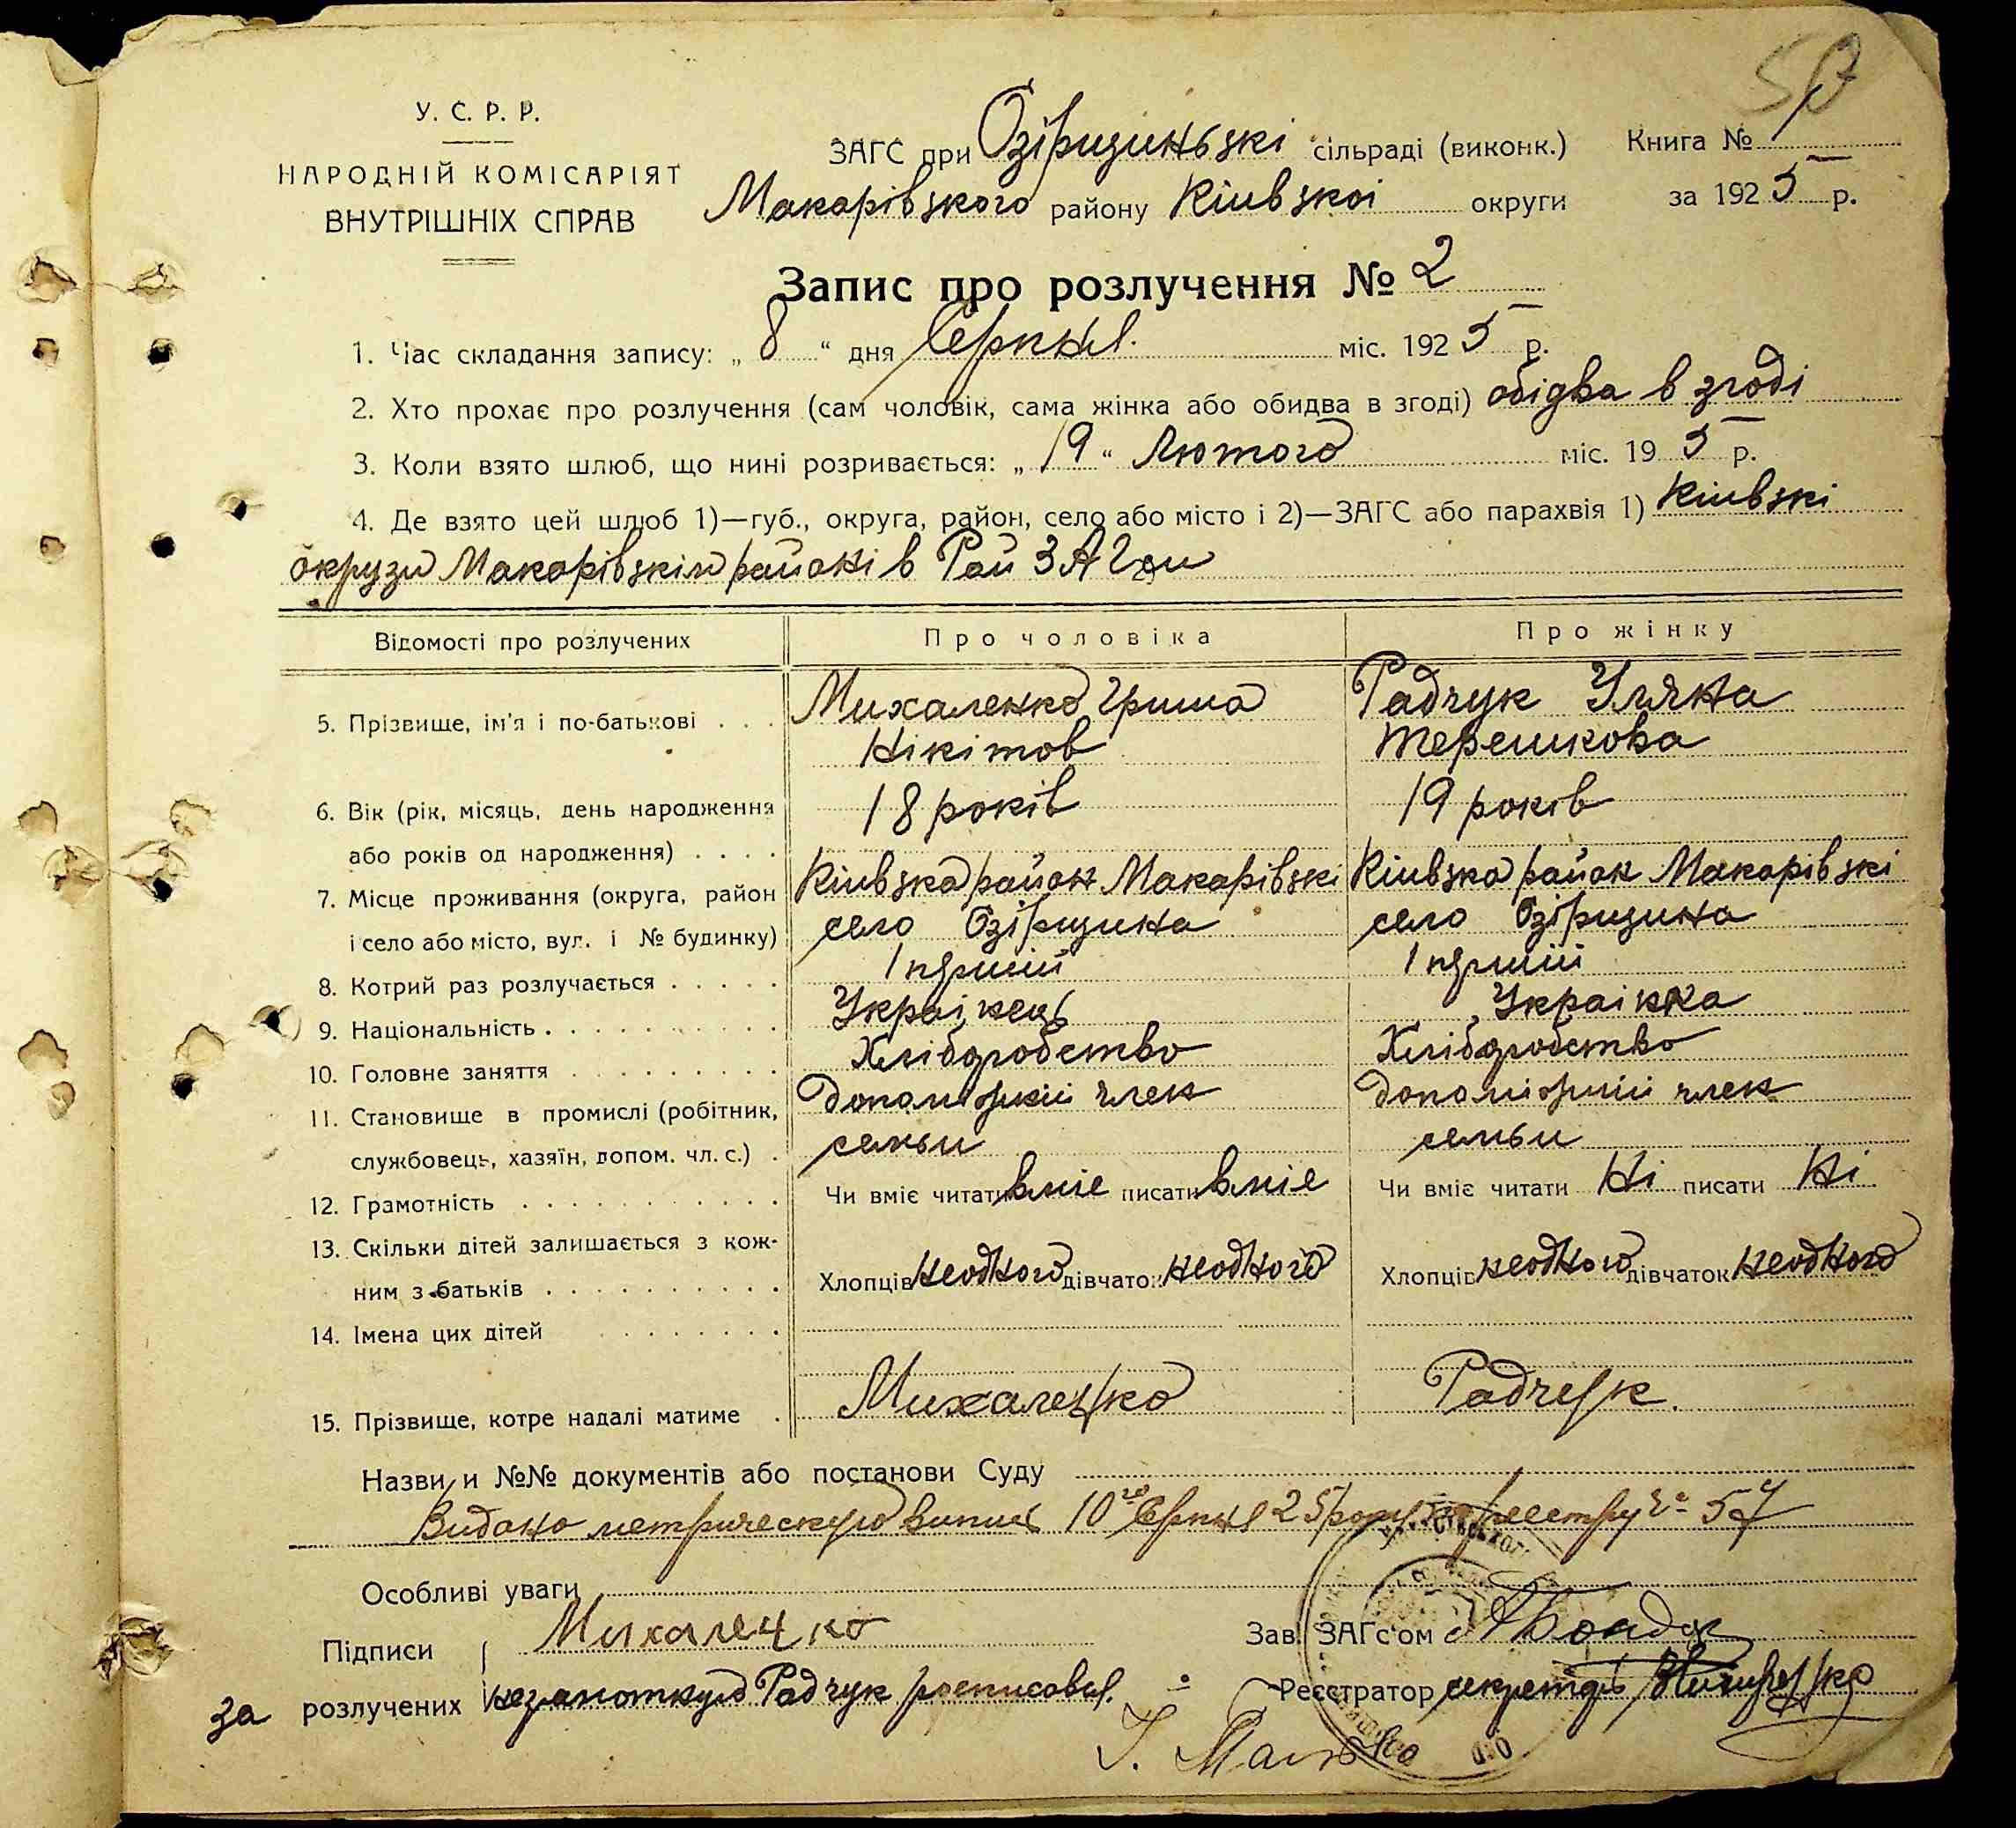 50
У. С. Р. Р.
НАРОДНІЙ КОМІСАРІЯТ
ВНУТРІШНІХ СПРАВ
ЗАГС при Озірщиньскі сільраді (виконк.) Книга №
Макарівского району Кіивскоі округи за 1925 р.
Запис про розлучення № 2
1. Час складання запису: „ 8 “ дня Серпня. міс. 1925 р.
2. Хто прохає про розлучення (сам чоловік, сама жінка або обидва в згоді) обідва в згоді
3. Коли взято шлюб, що нині розривається: „ 19 “ Лютого міс. 19 5 р.
4. Де взято цей шлюб 1)—губ., округа, район, село або місто і 2)—ЗАГС або парахвія 1) Кіивскі
округи Макарівскім районі в Рай ЗАГси
Відомості про розлучених
Про чоловіка
Про жінку
5. Прізвище, ім'я і по-батькові . . .
Михаленко Гриша
Нікітов
Радчук Уляна
Терешкова
6. Вік (рік, місяць, день народження
або років од народження) . . . .
18 років
19 років
7. Місце проживання (округа, район
і село або місто, вул. і № будинку)
Кіивска район Макарівскі
село Озірщина
Кіивска район Макарівскі
село Озірщина
8. Котрий раз розлучається . . . . .
1 перший
1 перший
9. Національність . . . . . . . . . .
Українець
Украінка
10. Головне заняття . . . . . . . . .
Хліборобство
Хліборобство
11. Становище в промислі (робітник,
службовець, хазяїн, допом. чл. с.) .
Допоміжній член
семьи
допоміжній член
семьи
12. Грамотність . . . . . . . . . . .
Чи вміє читати вміє писати вміє
Чи вміє читати Ні писати Ні
13. Скільки дітей залишається з кож-
ним з батьків . . . . . . . . . .
Хлопців неодного дівчаток неодного
Хлопців неодного дівчаток неодного
14. Імена цих дітей . . . . . . . .
15. Прізвище, котре надалі матиме .
Михаленко
Радчук.
Назви и №№ документів або постанови Суду
Видано метрическую випись 10го Серпня 25 року реестру № 57
Особливі уваги
Підписи Михаленко Зав. ЗАГс'ом
за розлучених Радчук росписався. Реєстратор секретарь